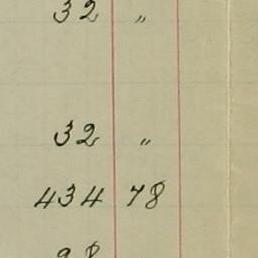 32 "
32 "
434 78
98